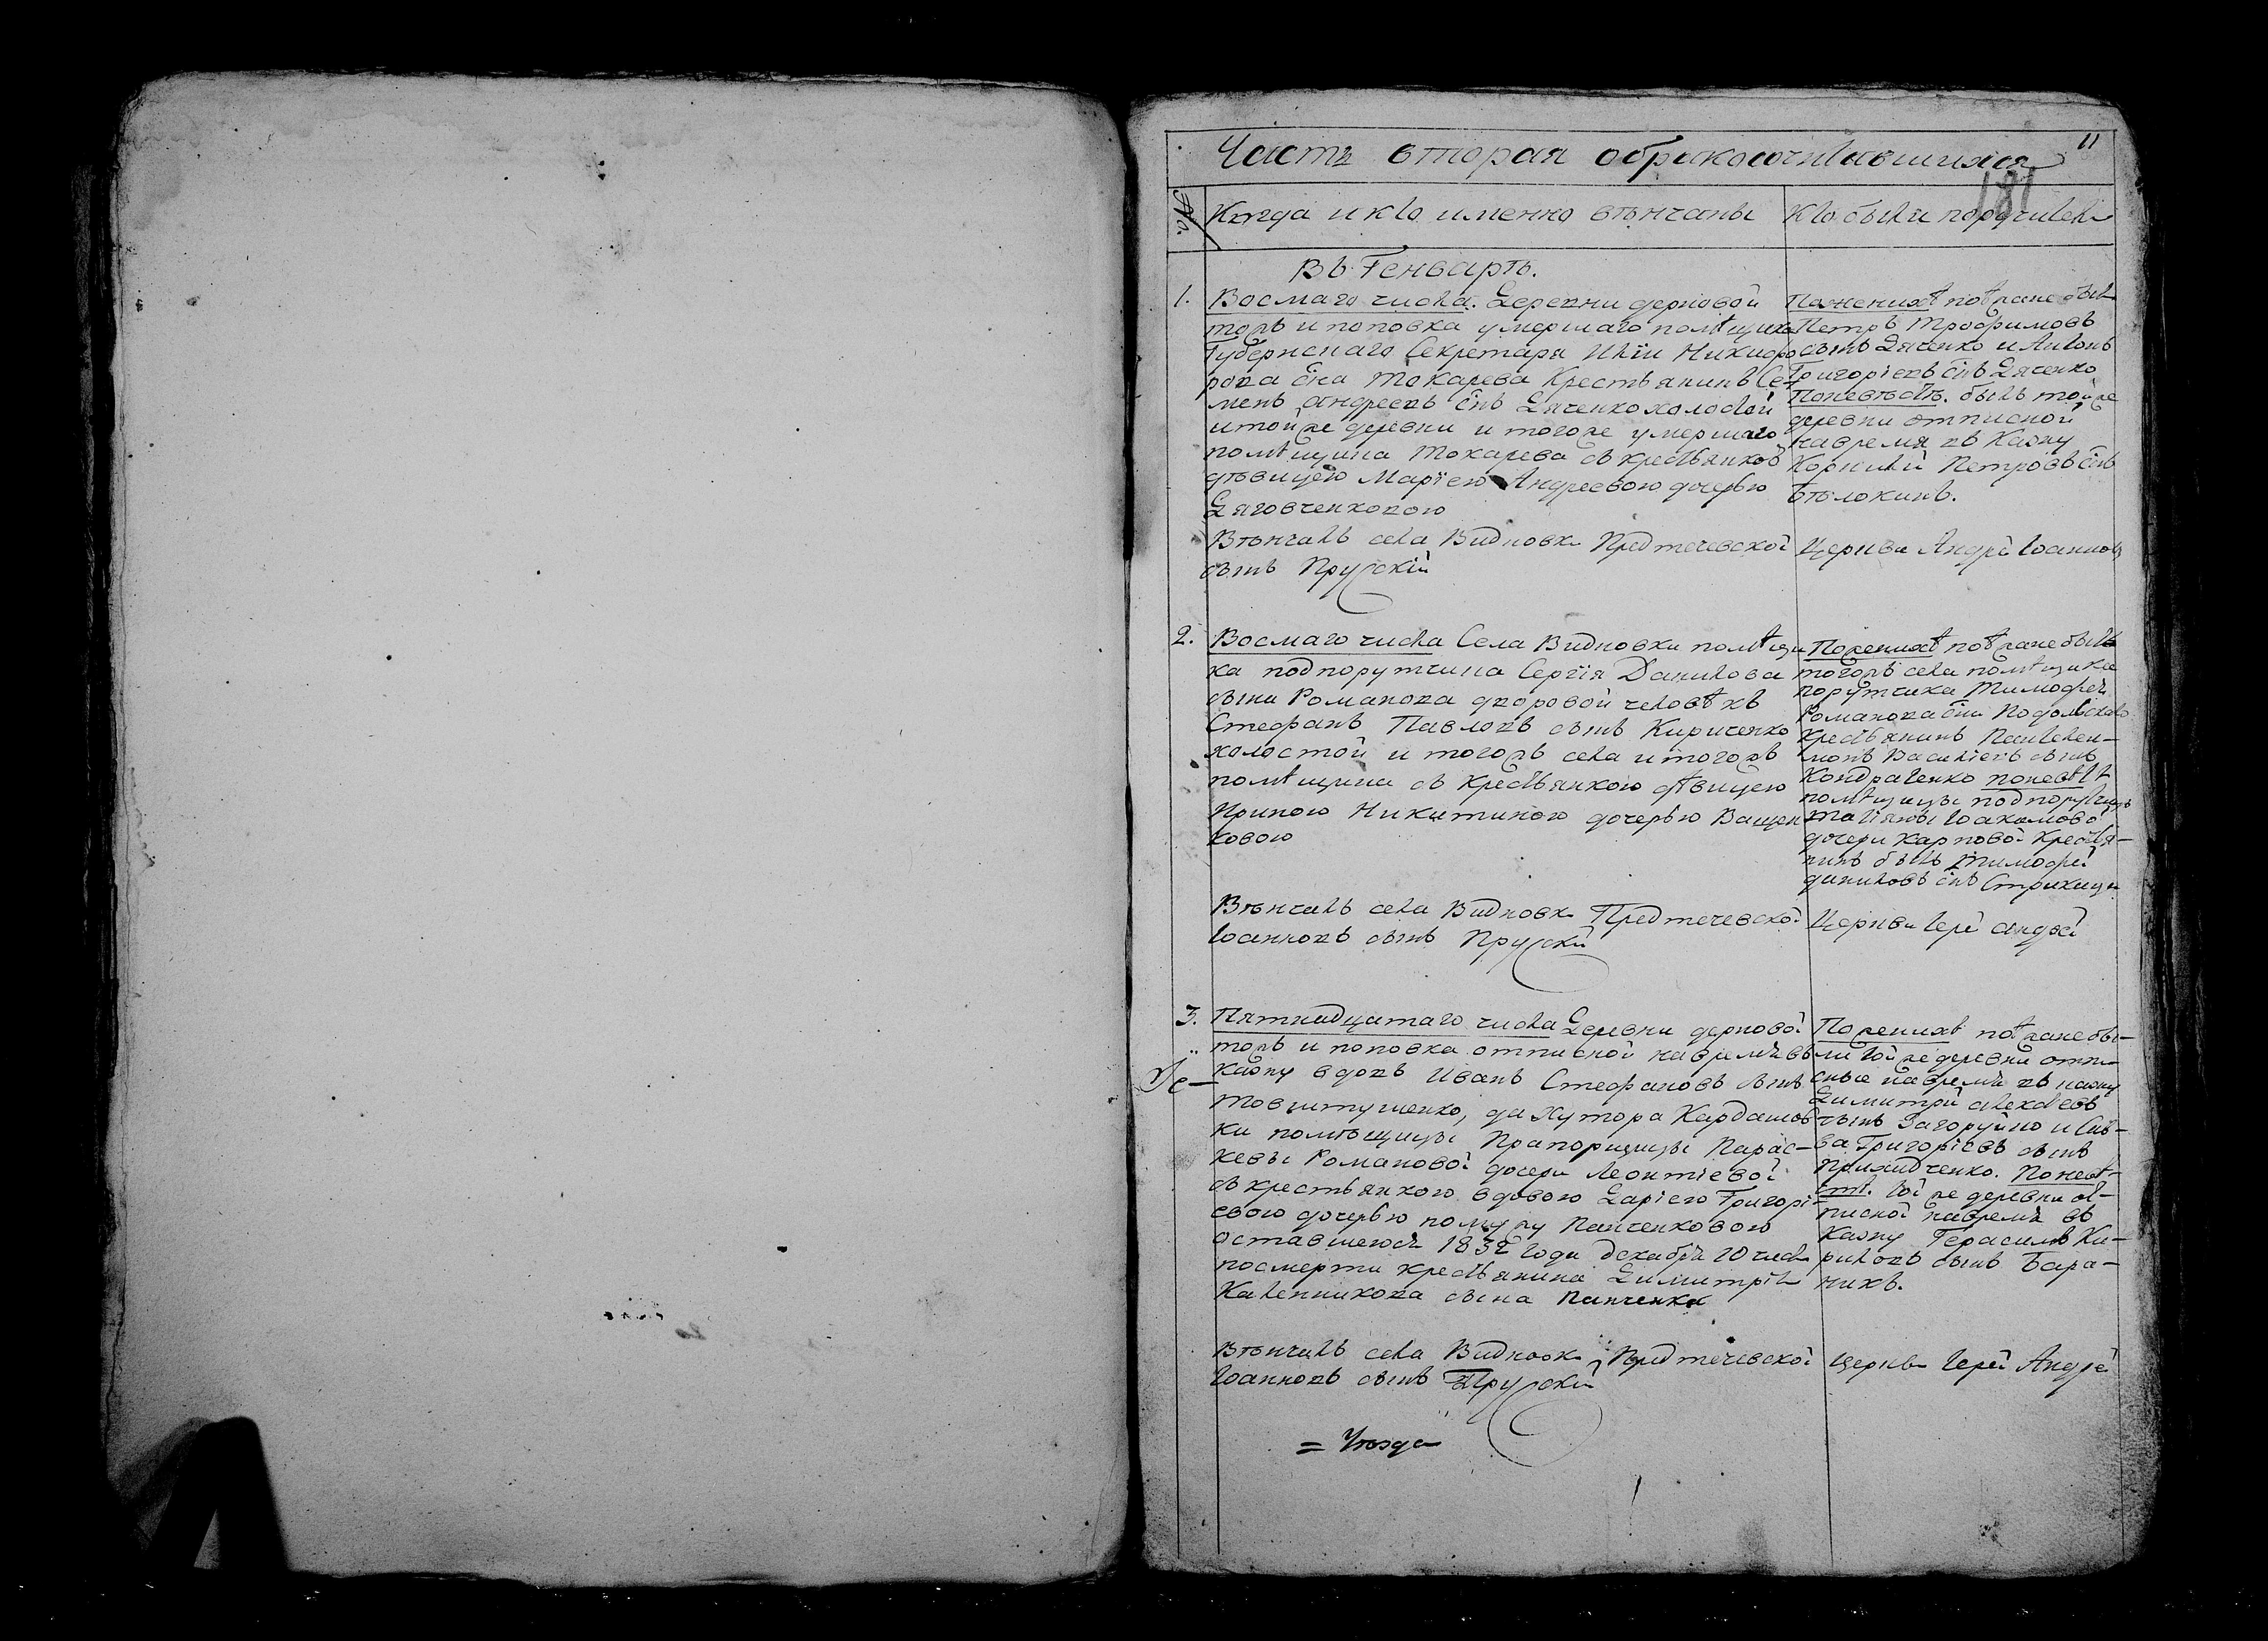 Часть вторая о бракосочитавшихся
11
181
№.
Когда и кто именно вѣнчаны
Кто были поручители
Въ Генварѣ.
1.
Восмаго числа. Деревни дерновой
тожъ и поповка умершаго помѣщика
Губернскаго Секретаря Иліи Никифо
рова сна Токарева Крестьянинъ Се-
менъ Андреевъ снъ Дяченко холостой
и той же деревни и того же умершаго
помѣщика Токарева съ крестьянкой
дѣвицею Маріею Андреевою дочерью
Дяговченковою
По женихѣ поѣзжане были
Петръ Трофимовъ
сынъ Дяченко и Антонъ
Григоріевъ снъ Дяченко
По невѣстѣ. былъ той же
деревни отписной
на время въ Казну
Корнилій Петровъ снъ
Бѣлокинъ.
Вѣнчалъ села Видновки Предтечевской Церкви Андрей Іоанновъ
сынъ Прускій
2.
Восмаго числа Села Видновки помѣщи
ка подпорутчика Сергія Данилова
сына Романова дворовой человѣкъ
Стефанъ Павловъ сынъ Кириченко
холостой и тогожъ села и тогожъ
помѣщика съ крестьянкою дѣвицею
Ириною Никитиною дочерью Ващен
ковою
По женихѣ поѣзжане былъ
тогожъ села помѣщика
порутчика Тимофей
Романова сна Подольскаго
крестьянинъ Пантелей-
монъ Василіевъ сынъ
Кондратенко по невѣстѣ
помѣщицы подпорутчицы
Татіяны Іоакимовой
дочери Карповой Крестья-
нинъ былъ Тимофей
Даниловъ снъ Стрижаци
Вѣнчалъ села Видновки Предтечевской Церкви Іерей Андрей
Іоанновъ сынъ Прускій
3.
Пятнадцатаго числа Деревни дерновой
тожъ и поповка отписной на время въ
казну вдовъ Иванъ Стефановъ сынъ
Товштушенко, да Хутора Кардашов
ки помѣщицы Прапорщицы Парас-
кевы Романовой дочери Леонтіевой
съ крестьянкою вдовою Даріею Григорі-
евою дочерью по мужу Панченковою
оставшеюся 1832 года декабря 10 числа
по смерти крестьянина Димитрія
Каленникова сына Панченка
По женихѣ поѣзжане бы-
ли той же деревни отпи-
сные на время въ казну
Димитрій Алексеевъ
сынъ Загоруйно и Сав-
ва Григоріевъ сынъ
По невѣ-
стѣ. той же деревни от-
писной на время въ
Казну Герасимъ Ки-
риловъ сынъ Бара-
никъ.
Вѣнчалъ села Видновки Предтечевской Церкви Іерей Андрей
Іоанновъ сынъ Прускій
= Уѣзда